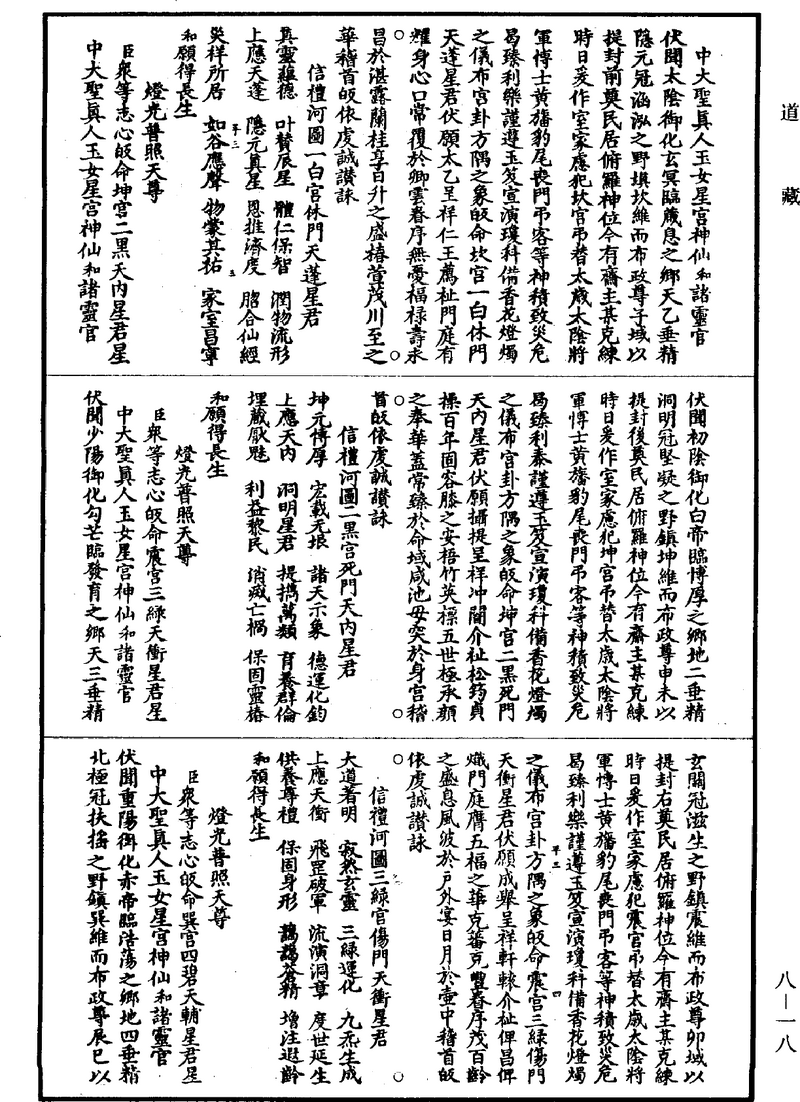 道藏
中大聖眞人玉女星宮神仙和諸靈官
伏聞太陰御化玄冥臨藏息之鄉天乙垂精
隱元冠涵泓之野填坎維而布政尊子域以
提封前奠民居俯羅神位今有齋主某克練
時日爰作室家慮犯坎宮弔替太歲太陰將
軍博士黃旛豹尾喪門弔客等神積致災危
曷臻利樂謹遵玉笈宣演瓊科備香花燈燭
之儀布宮卦方隅之象皈命坎宮一白休門
天蓬星君伏願太乙呈祥仁王薦祉門庭有
耀身心口常覆於卿雲春序無憂福祿壽永
昌於湛露蘭桂享日升之盛椿萱茂川至之
華稽首皈依虔誠讃詠
信禮河圖一白宮休門天蓬星君
眞靈蘊德 叶賛辰星 體仁保智 潤物流形
上應天蓬 隱元眞星 恩推濟度 䐇合仙經
災祥所居 如谷應聲 物蒙其祐 家室昌寧
和願得長生
燈光普照天尊
臣衆等志心皈命坤宮二黑天內星君星
中大聖眞人玉女星宮神仙和諸靈官
伏聞初陰御化白帝臨博厚之鄉地二垂精
洞明冠堅凝之野鎮坤維而布政尊申未以
提封後奠民居俯羅神位今有齋主某克練
時日爰作室家慮犯坤宮弔替太歲太陰將
軍博士黃旛豹尾喪門弔客等神積致災危
曷臻利泰謹遵玉笈宣演瓊科備香花燈燭
之儀布宮卦方隅之象皈命坤宮二黑死門
天內星君伏願攝提呈祥冲闈介祉松筠貞
操百年固容膝之安梧竹英標五世極承顏
之奉華蓋常臻於命域咸池毋突於身宮稽
首皈依虔誠讃詠
信禮河圖二黑宮死門天內星君
坤元博厚 宏載无垠 諸天示象 德運化鈞
上應天內 洞明星君 提撝萬類 育養群倫
埋藏厭魅 利益黎民 消滅亡禍 保固靈椿
和願得長生
燈光普照天尊
臣衆等志心皈命震宮三綠天衝星君星
中大聖眞人玉女星宮神仙和諸靈官
伏聞少陽御化勾芒臨發育之鄉天三垂精
玄關冠滋生之野鎮震維而布政尊卯域以
提封右奠民居俯羅神位今有齋主某克練
時日爰作室家慮犯震宮弔替太歲太陰將
軍博士黃旛豹尾喪門弔客等神積致災危
曷臻利樂謹遵玉笈宣演瓊科備香花燈燭
之儀布宮卦方隅之象皈命震宮三綠傷門
天衝星君伏願咸舉呈祥軒轅介祉俾昌俾
熾門庭膺五福之華克蕃克豐春序茂百齡
之盛息風波於戶外宴日月於壷中稽首皈
依虔誠讃詠
信禮河圖三綠宮傷門天衝星君
大道著明 寂然玄靈 三綠運化 九炁生成
上應天衝 飛罡破軍 流演洞章 度世延生
供養尊禮 保固身形 藹藹蒼精 增注遐齡
和願得長生
燈光普照天尊
臣衆等志心皈命巽宮四碧天輔星君星
中大聖眞人玉女星宮神仙和諸靈官
伏聞重陽御化赤帝臨浩蕩之鄉地四垂精
北極冠扶搖之野鎮巽維而布政尊辰巳以
八—一八